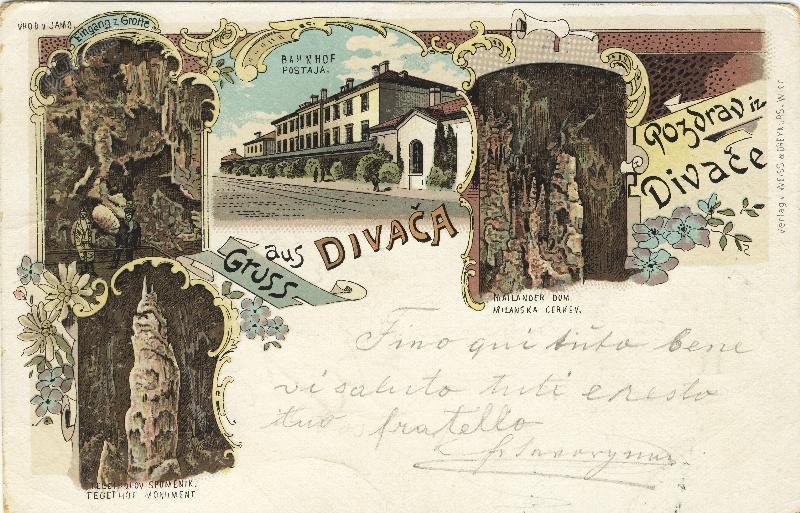 VHOD V JAMO.
Eingang z. Grotte
BAHNHOF
POSTAJA.
Pozdrav iz
Divače
Gruss aus DIVAČA
MAILÄNDER DOM.
MILANSKA CERKEV.
Fino qui tuto bene
vi saluto tuti e resto
tuo fratello
TEGETHOFOV SPOMENIK.
TEGETHOF MONUMENT